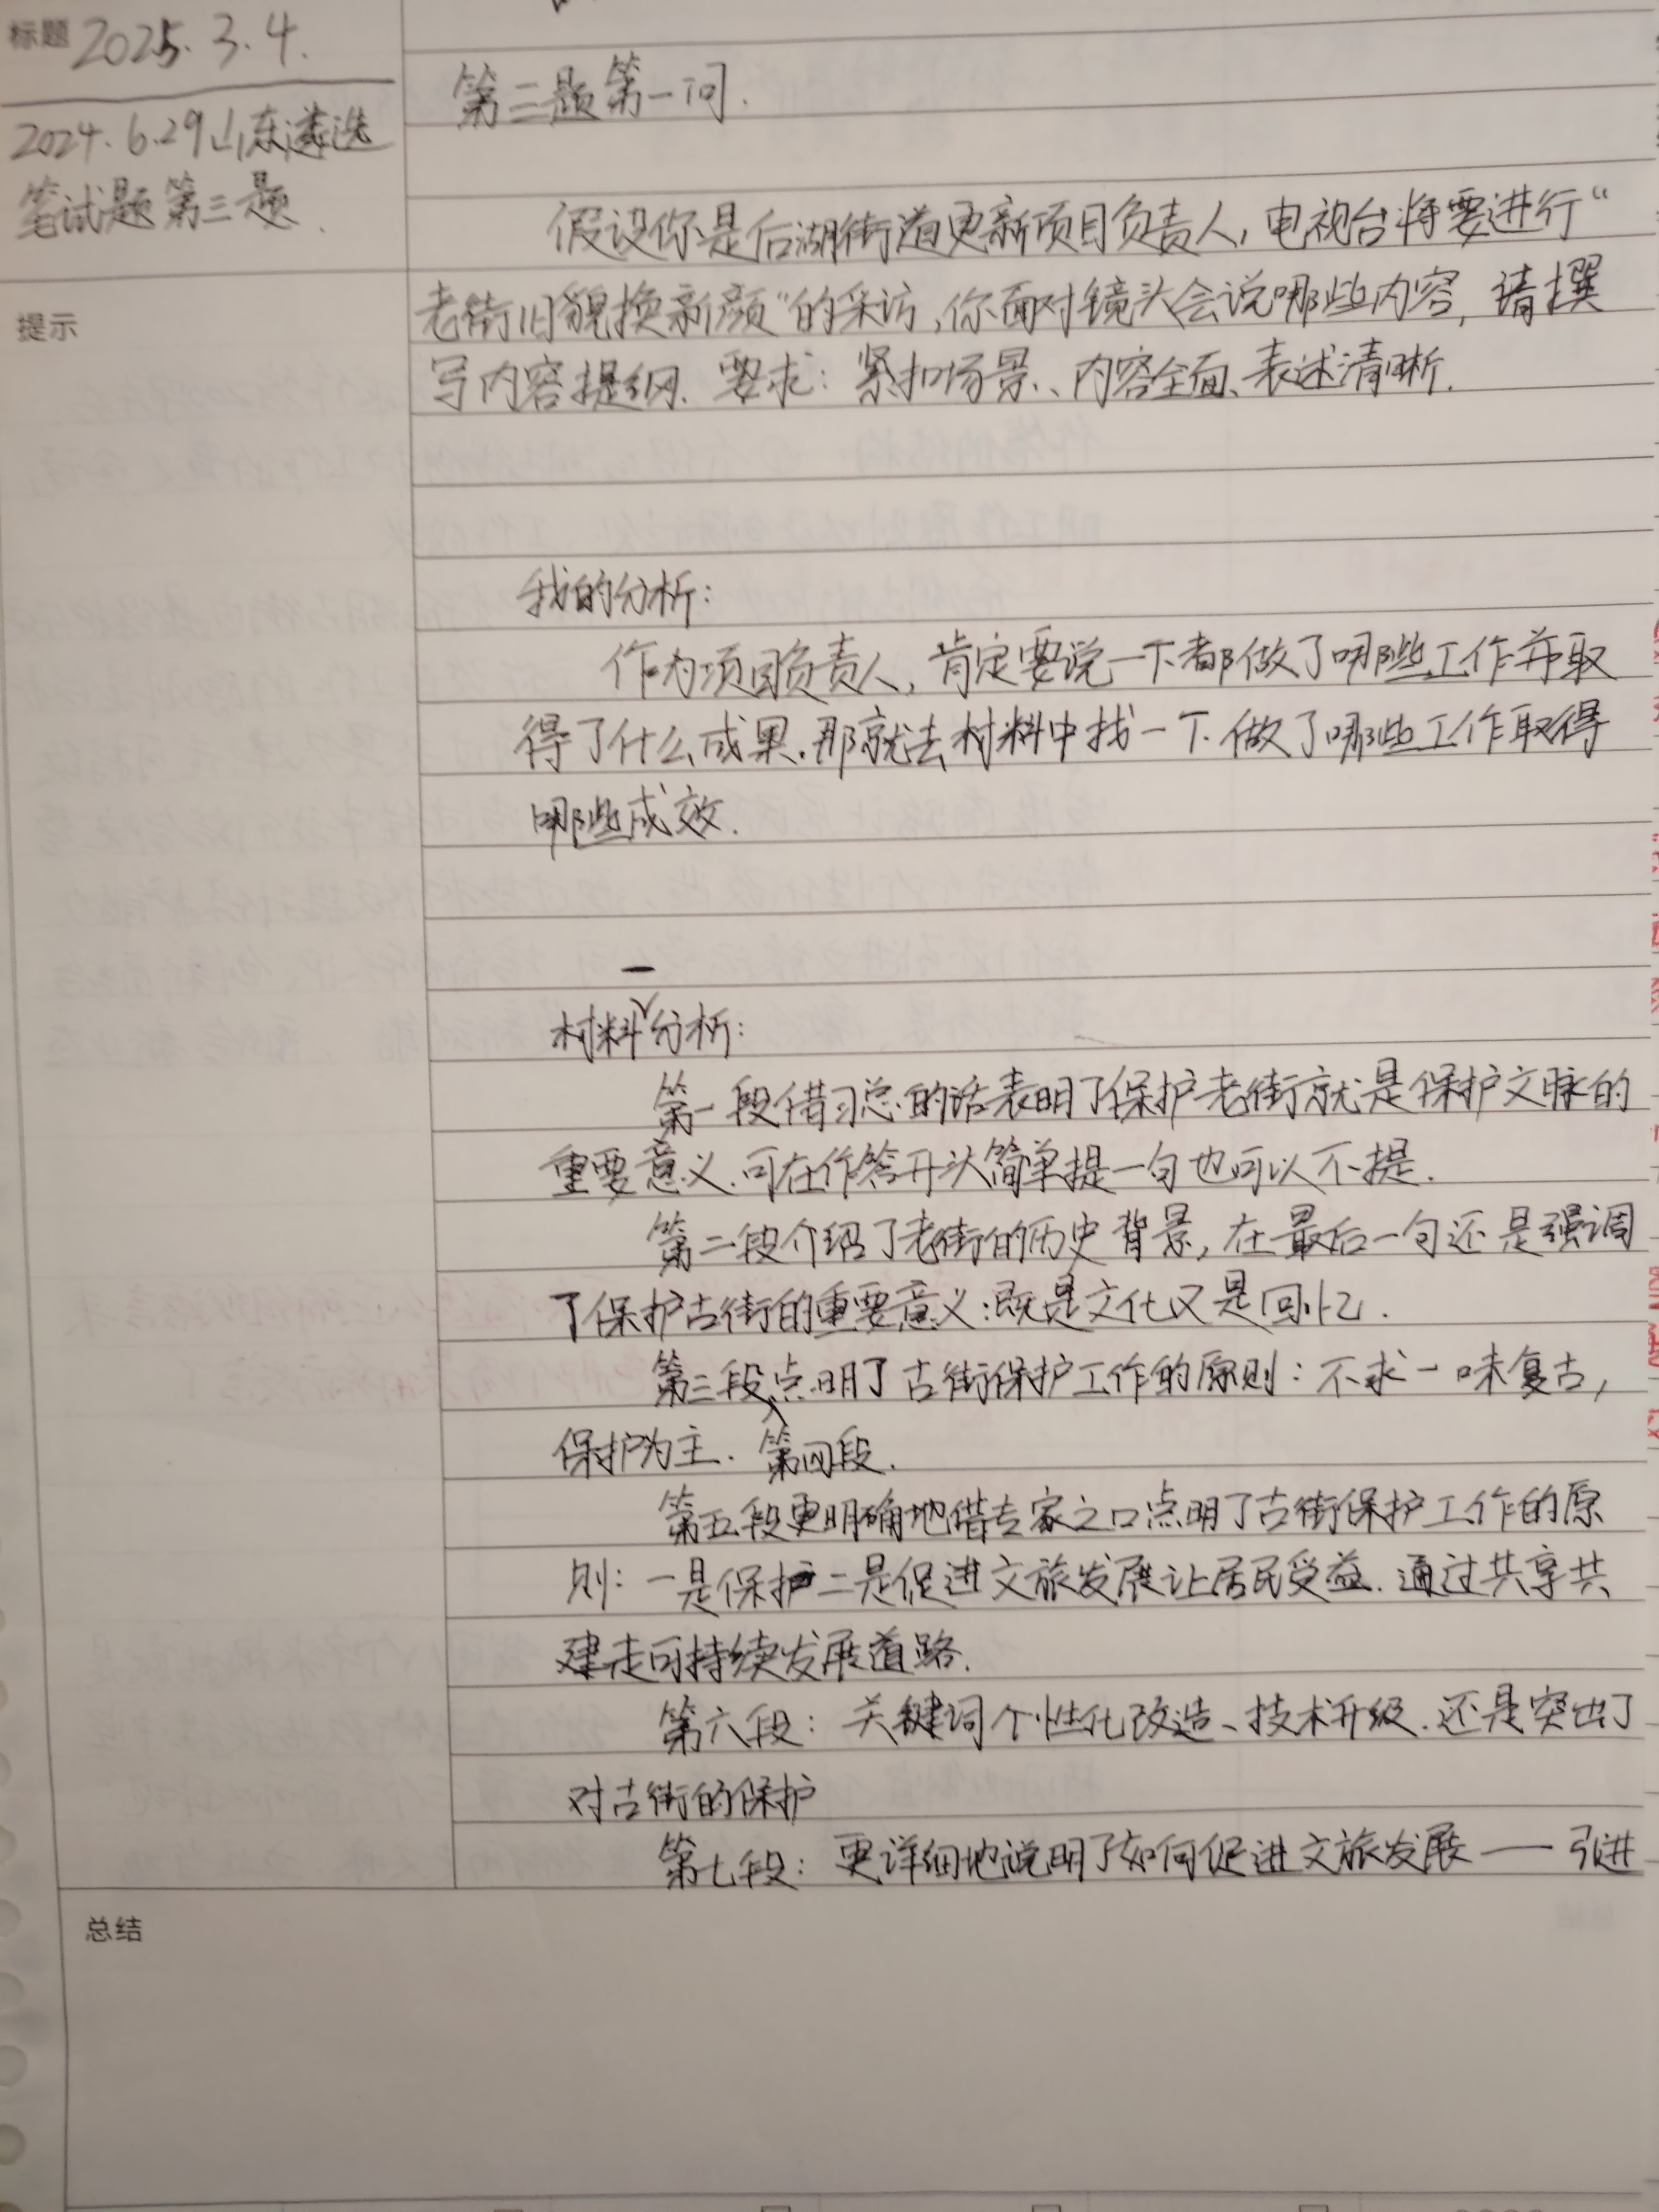 标题 2025.3.4.
2024.6.29山东遴选
笔试题第三题.
提示
第三题第一问.
假设你是后湖街道更新项目负责人,电视台将要进行“
老街旧貌换新颜”的采访,你面对镜头会说哪些内容,请撰
写内容提纲.要求:紧扣场景、内容全面、表述清晰.
我的分析:
作为项目负责人,肯定要说一下都做了哪些工作并取
得了什么成果.那就去材料中找一下做了哪些工作取得
哪些成效.
一
材料分析:
第一段借习总的话表明了保护老街就是保护文脉的
重要意义.可在作答开头简单提一句也可以不提.
第二段介绍了老街的历史背景,在最后一句还是强调
了保护古街的重要意义:既是文化又是回忆.
第三段点明了古街保护工作的原则:不求一味复古,
保护为主.第四段.
第五段更明确地借专家之口点明了古街保护工作的原
则:一是保护二是促进文旅发展让居民受益.通过共享共
建走可持续发展道路.
第六段:关键词个性化改造、技术升级.还是突出了
对古街的保护
第七段:更详细地说明了如何促进文旅发展——引进
总结